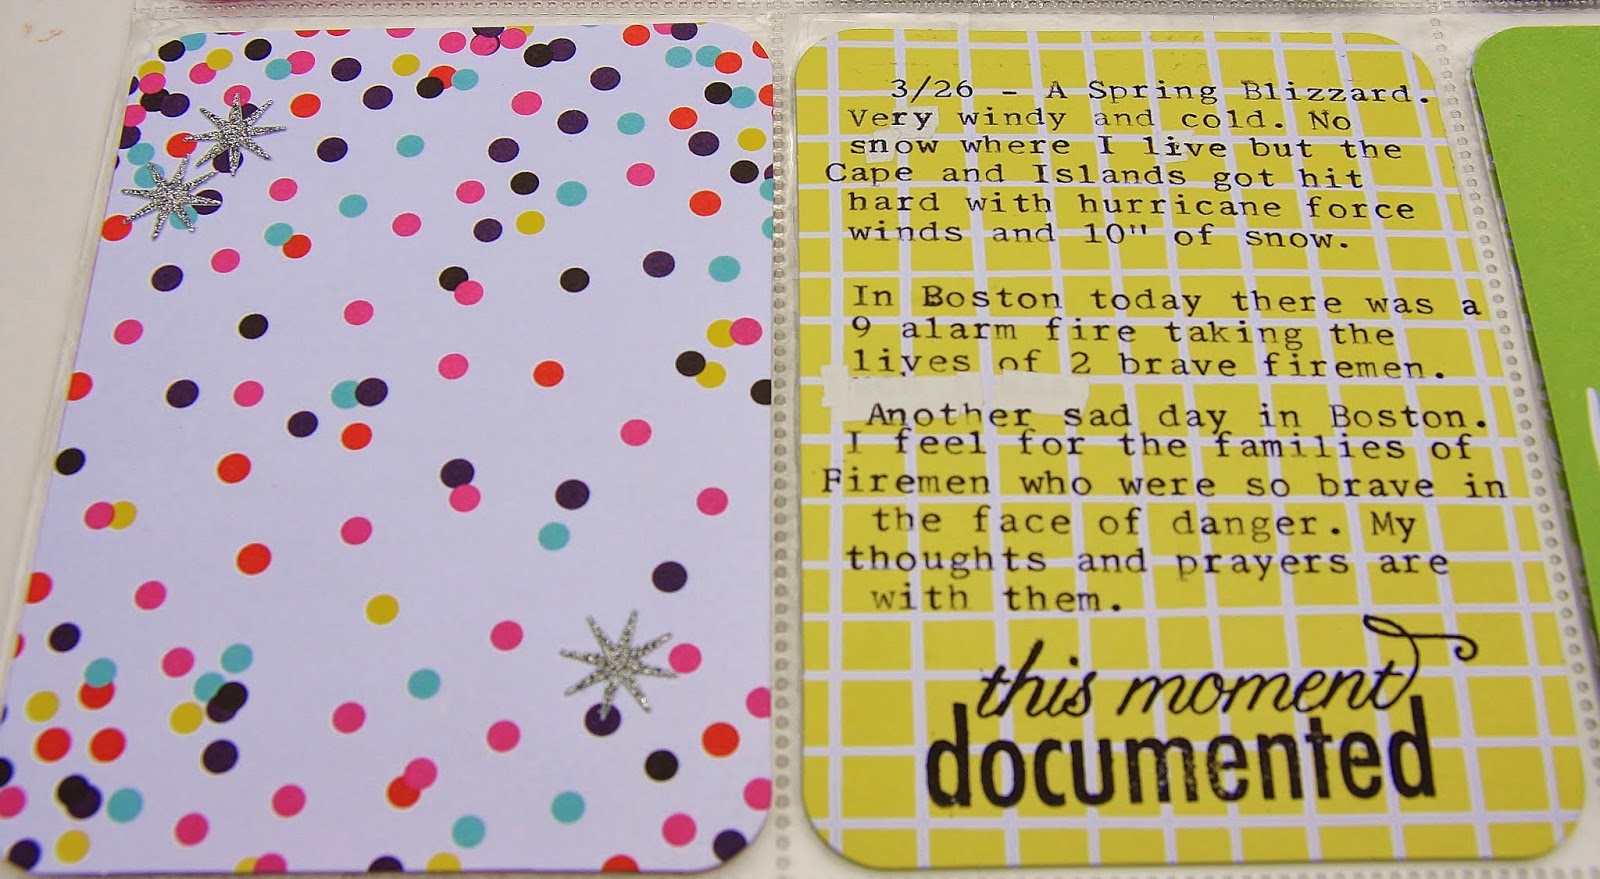 3/26 - A Spring Blizzard.
Very windy and cold. No
snow where I live but the
Cape and Islands got hit
hard with hurricane force
winds and 10" of snow.
In Boston today there was a
9 alarm fire taking the
lives of 2 brave firemen.
Another sad day in Boston.
I feel for the families of
Firemen who were so brave in
the face of danger. My
thoughts and prayers are
with them.
this moment
documented